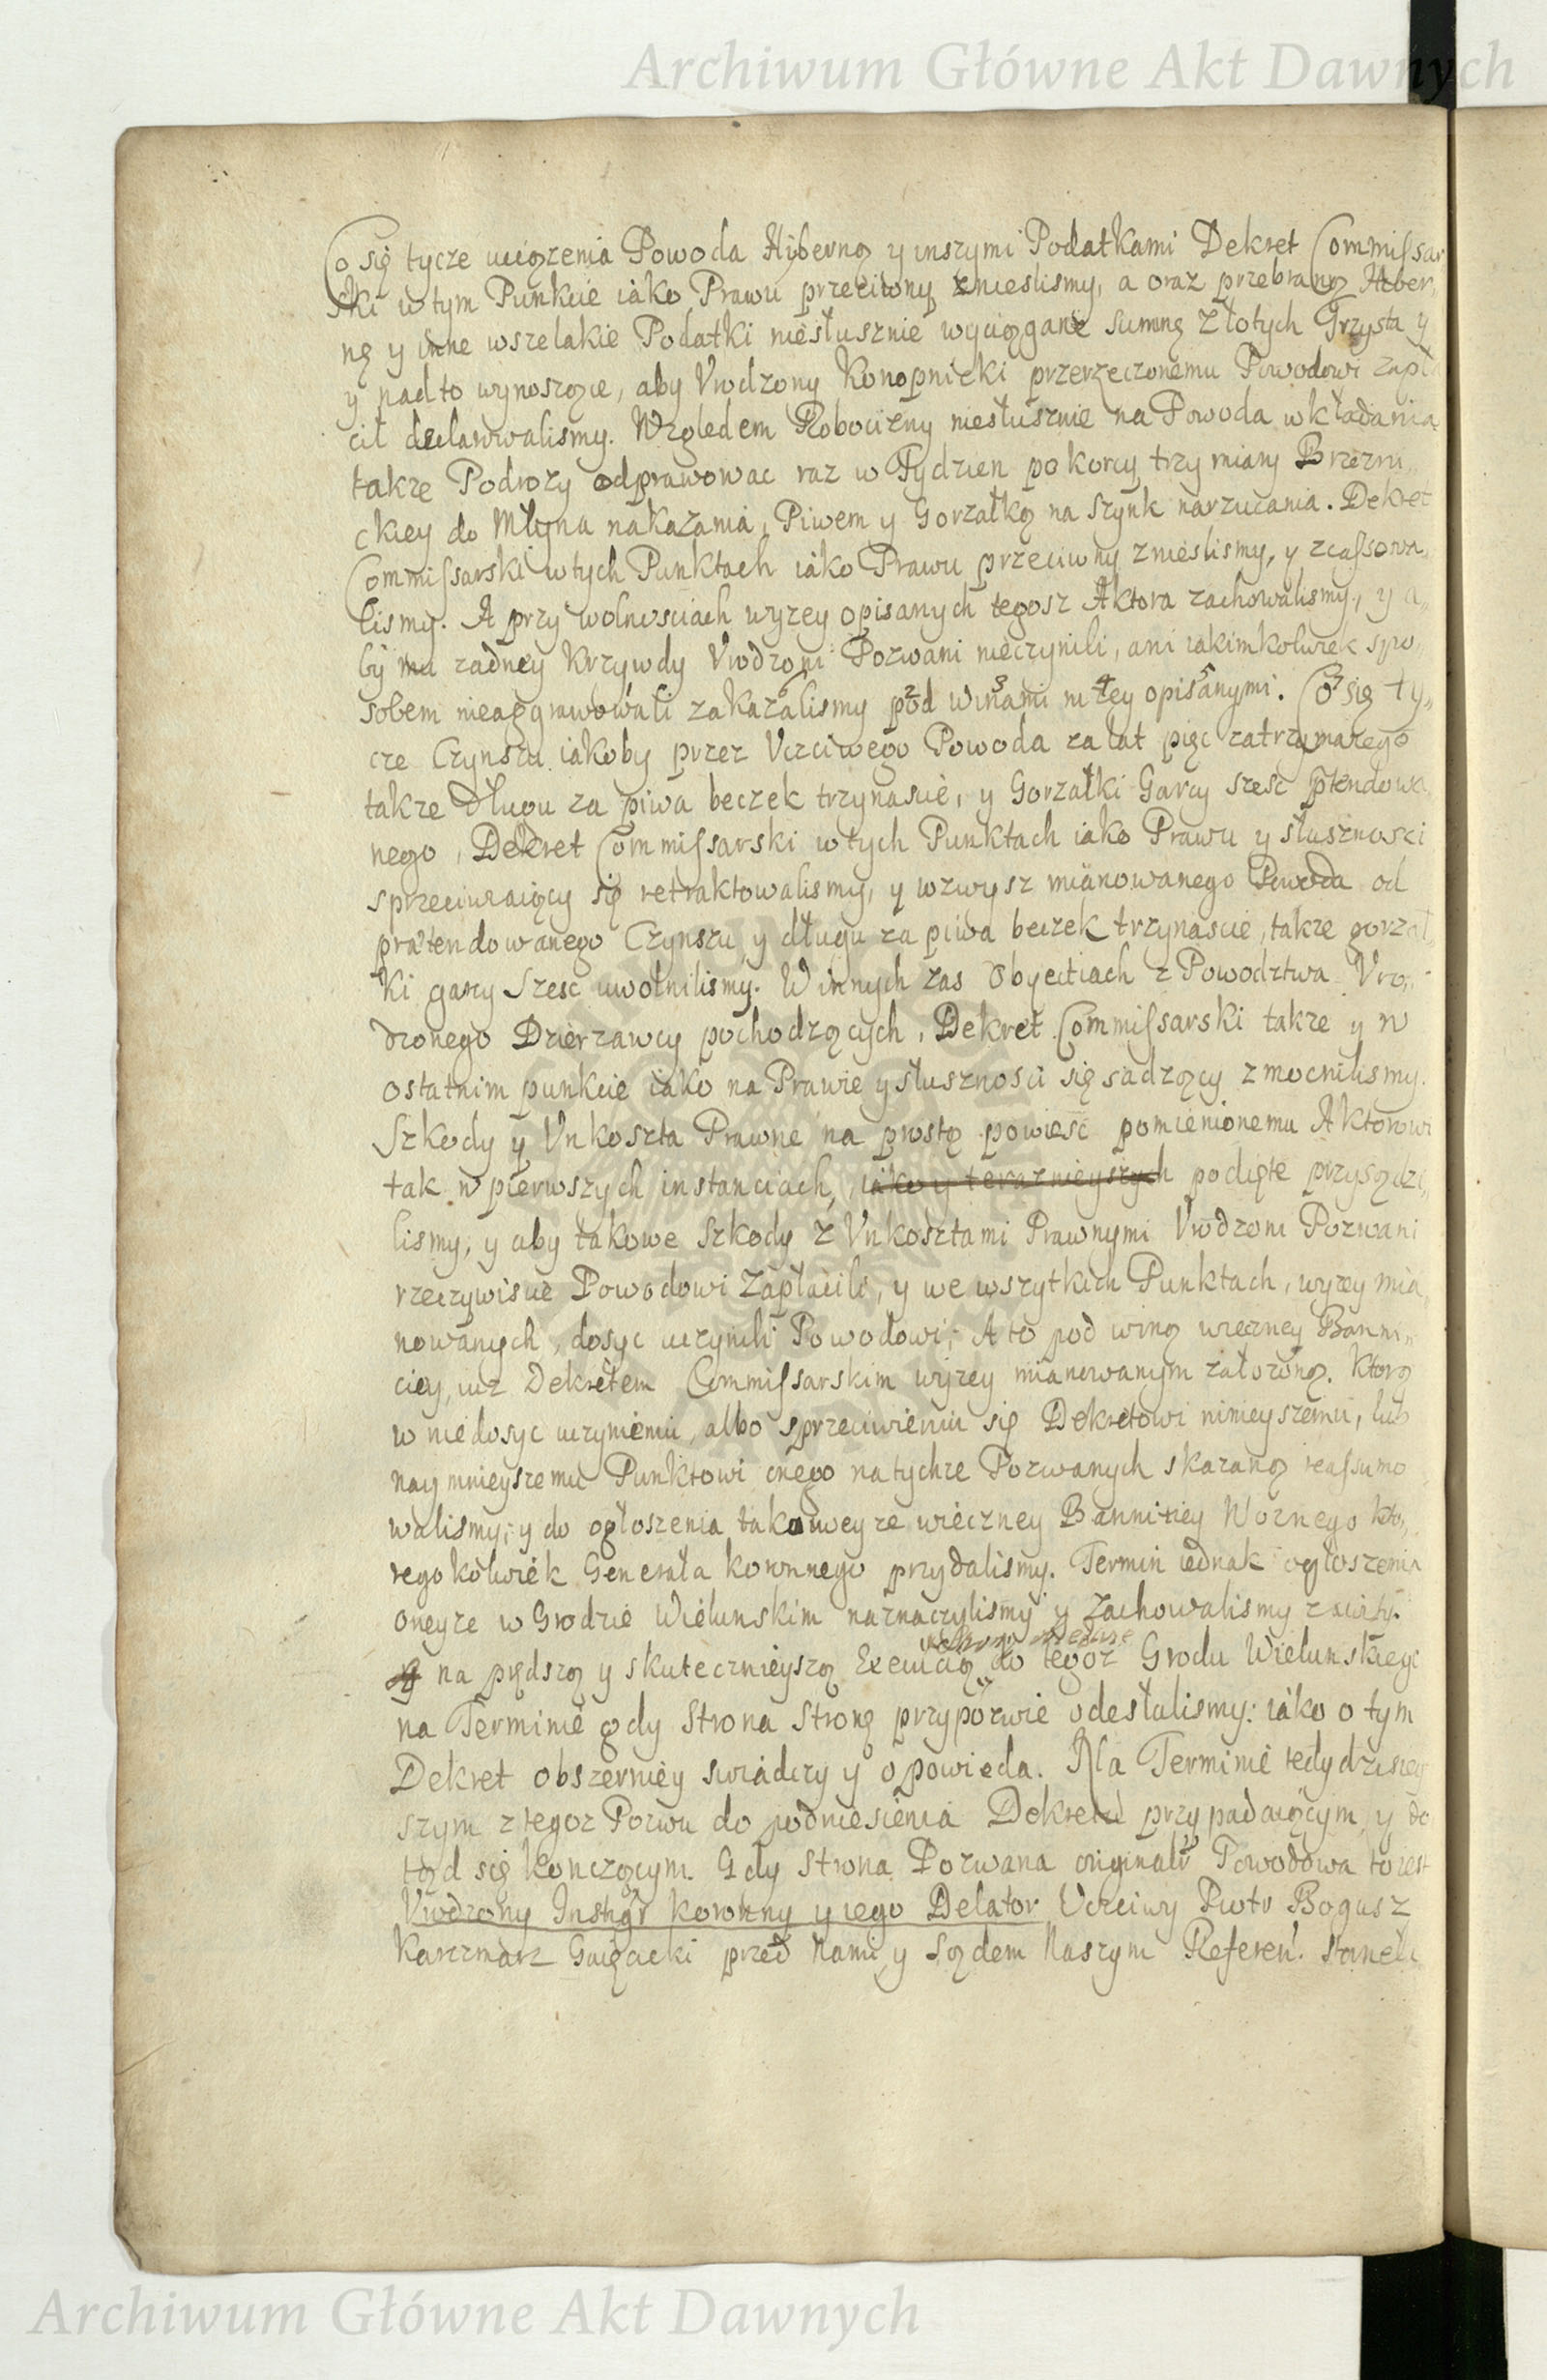 Archiwum Główne Akt Dawnych
Co się tycze uciązenia Powoda Hyberną y inszymi Podatkami Dekret Commissar
ski w tym Punkcie iako Prawu przeciwny znieslismy, a oraz przebraną Hiber,,
nę y inne wszelakie Podatki niesłusznie wyciągane summę Złotych Trzysta y
y nadto wynoszące, aby Vrodzony Konopnicki przerzeczonemu Powodowi zapła
cił declarowalismy. Względem Robocizny niesłusznie na Powoda wkładania
takze Podrozy odprawowac raz w Tydzien po korcy trzy miary Brzezni,,
ckiey do Młyna nakazania, Piwem y Gorzałką na szynk narzucania. Dekret
Commissarski w tych Punktach iako Prawu przeciwny znieslismy, y zcassowa,,
lismy. A przy wolnosciach wyzey opisanych tegosz Aktora zachowalismy, y a,,
by mu zadney Krzywdy Vrodzoni Pozwani nieczynili, ani iakimkolwiek spo,,
sobem nieaggrawowali zakazalismy pod winami nizey opisanymi. Co się ty,,
cze Czynszu iakoby przez Vczciwego Powoda za lat pięc zatrzymanego
takze Długu za piwa beczek trzynascie, y Gorzałki Garcy szesc ptendowa,,
nego, Dekret Commissarski w tych Punktach iako Prawu y słusznosci
sprzeciwiaiący się retraktowalismy, y wzwysz mianowanego Powoda od
prætendowanego Czynszu y długu za piwa beczek trzynascie, takze gorzał,,
ki garcy szesc uwolnilismy. W innych zas Obyectiach z Powodztwa Vro,,
dzonego Dzierzawcy pochodzących, Dekret Commissarski takze y w
ostatnim punkcie iako na Prawie y słusznosci się sadzący zmocnilismy.
Szkody y Vnkoszta Prawne na prostą powiesc pomienionemu Aktorowi
tak w pierwszych instanciach, iako y teraznieyszych podięte przysądzi,,
lismy, y aby takowe szkody z Vnkosztami Prawnymi Vrodzoni Pozwani
rzeczywiscie Powodowi zapłacili, y we wszytkich Punktach, wyzey mia,,
nowanych, dosyc uczynili Powodowi; A to pod winą wieczney Banni,,
ciey, uz Dekretem Commissarskim wyzey mianowanym załozoną. Ktorą
w niedosyc uczynieniu, albo sprzeciwieniu się Dekretowi ninieyszemu, lub
naymnieyszemu Punktowi onego na tychze Pozwanych skazaną reassumo
walismy; y do ogłoszenia takoweyze wieczney Bannitiey Woznego kto,,
regokolwiek Generała koronnego przydalismy. Termin iednak ogłoszenia
oneyze w Grodzie Wielunskim naznaczylismy y zachowalismy zawity.
y na prędszą y skutecznieyszą Executią do tegoz Grodu Wielunskiego
na Terminie gdy Strona Stronę przypozwie odesłalismy: iako o tym
Dekret obszerniey swiadczy y opowieda. Na Terminie tedy dzisiey
szym z tegoz Pozwu do podniesienia Dekretu przypadaiącym, y do
tąd się konczącym. Gdy Strona Pozwana originalr Powodowa to iest
Vrodzony Instigr koronny y iego Delator Vczciwy Piotr Bogusz
Karczmarz Gaięcicki przed Nami y Sądem Naszym Referen. staneli
Archiwum Główne Akt Dawnych